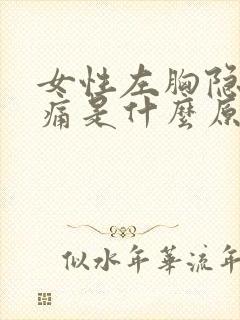 女性左胸隐
痛是什麼原
似水年華流年